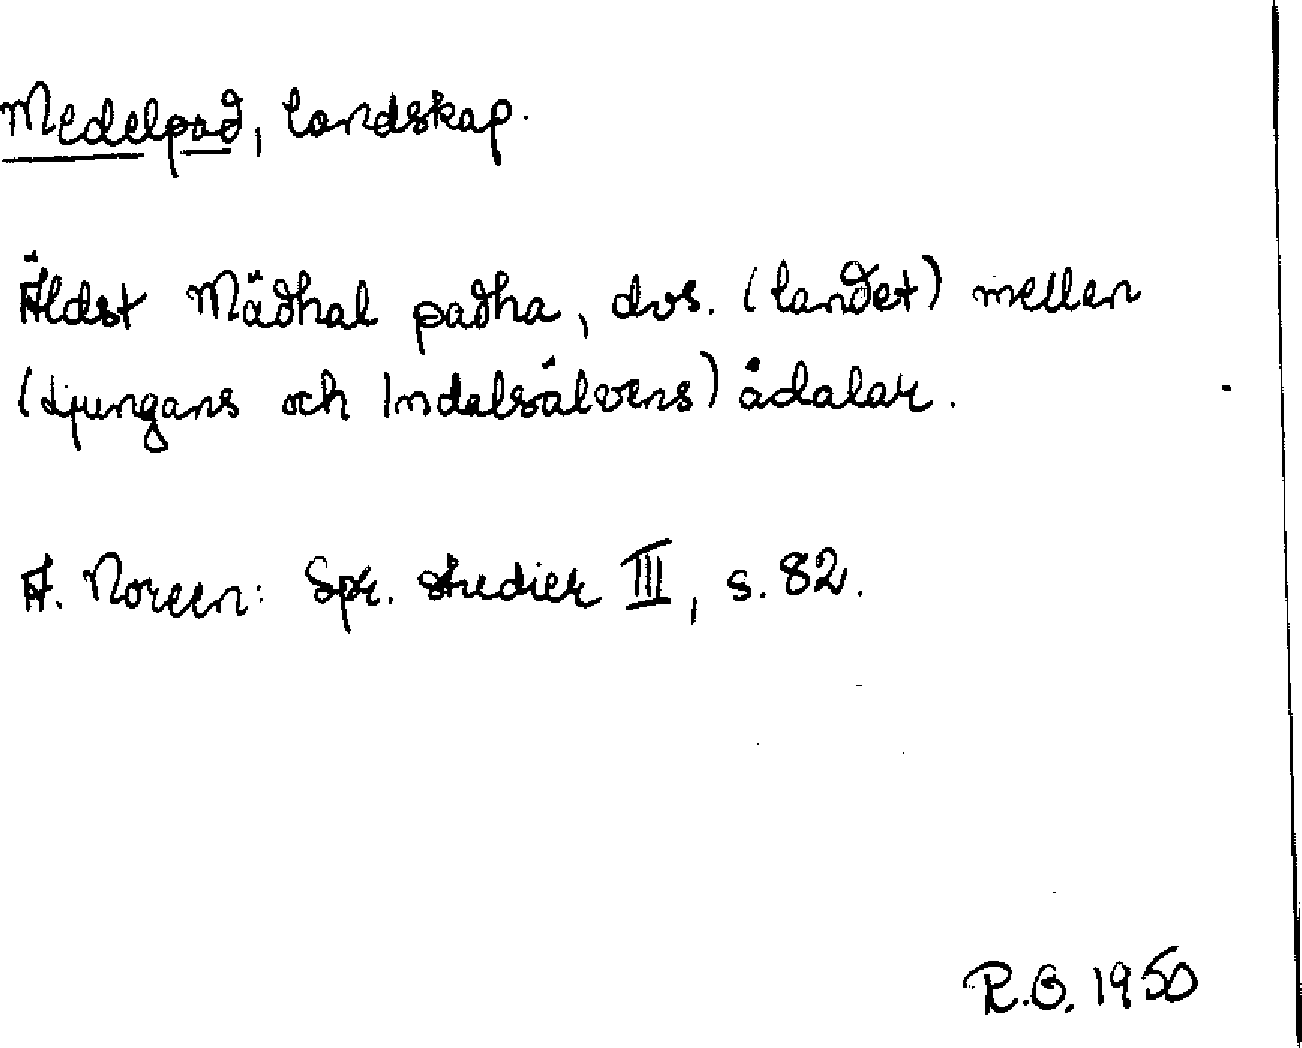 Medelpad, landskap.
Äldst Mädhal padha, dvs. (landet) mellan
(Ljungans och Indalsälvens) ådalar.
A. Noreen: Spr. studier III, s. 82.
R.B. 1950